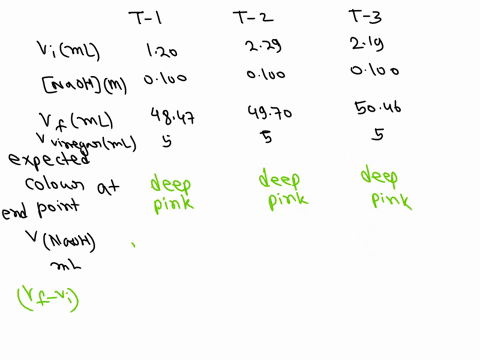 T-1 T-2 T-3
Vi (mL) 1.20 2.29 2.19
[NaOH] (M) 0.100 0.100 0.100
Vf (mL) 48.47 49.70 50.46
V vinegar (mL) 5 5 5
expected
colour at deep deep deep
end point pink pink pink
V (NaOH)
mL
(Vf-Vi)